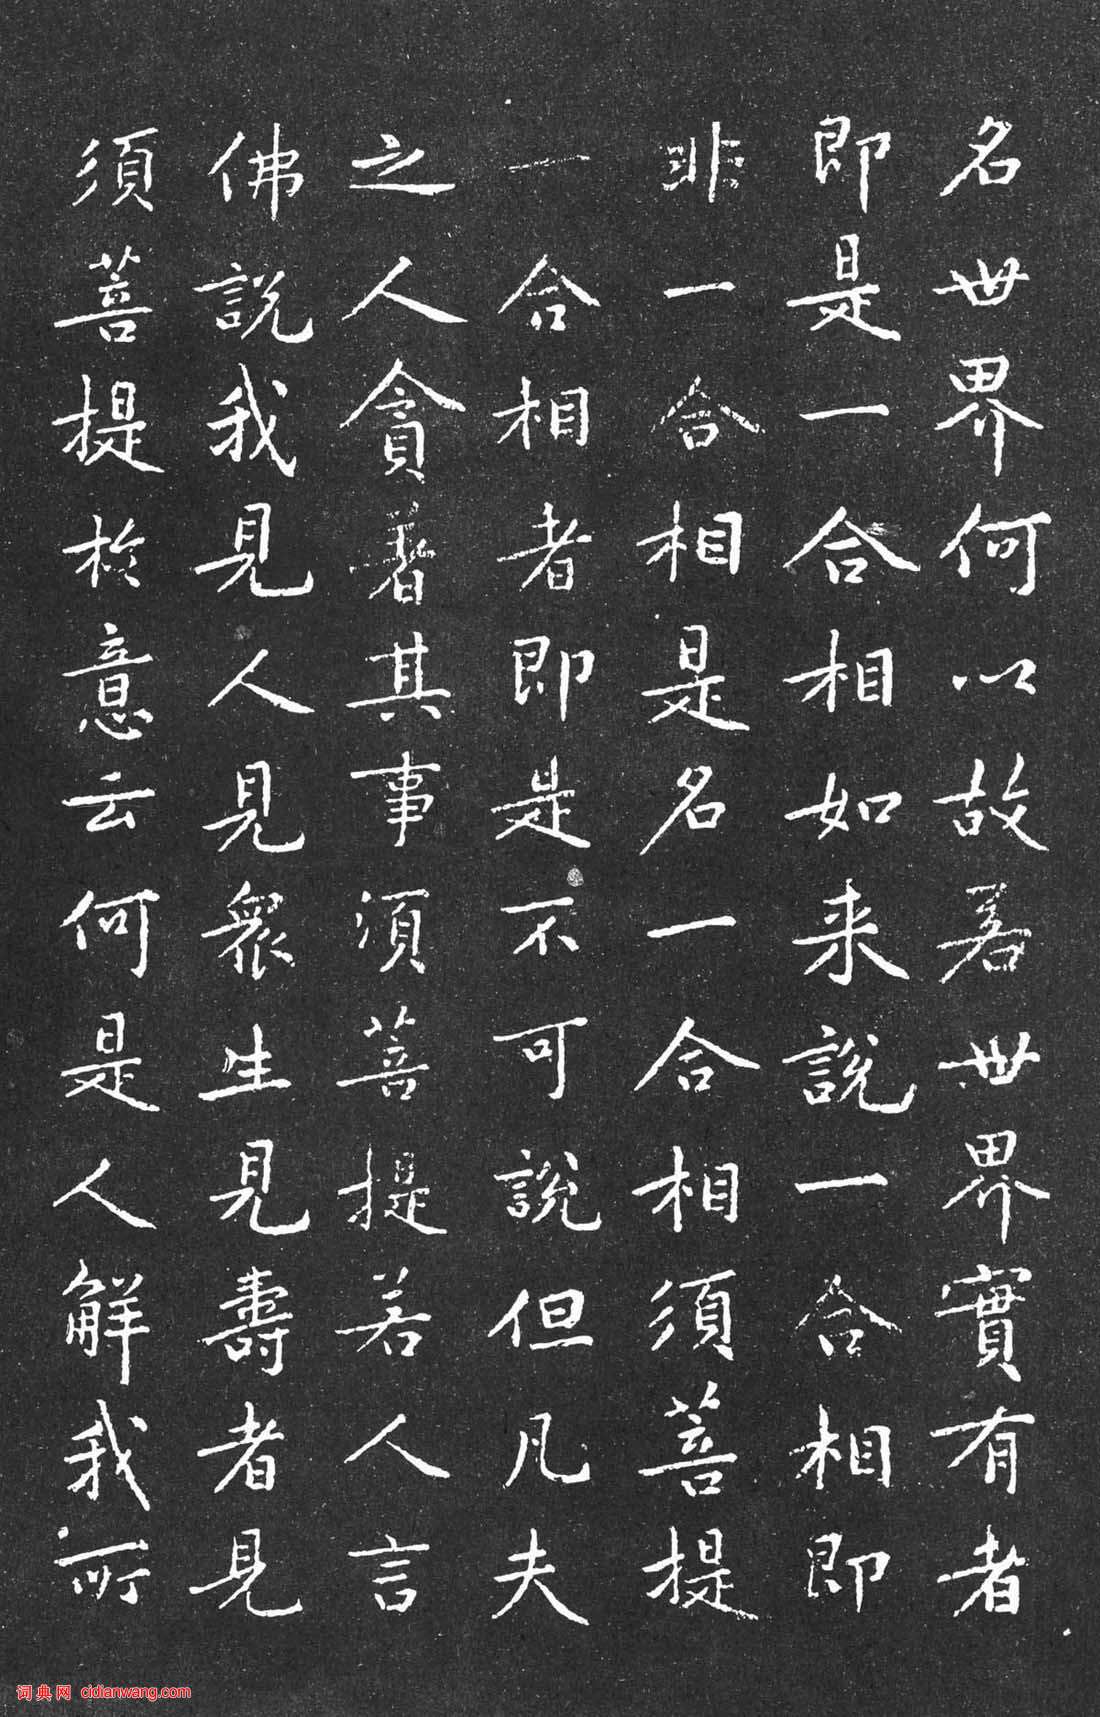 名世界何以故若世界實有者
即是一合相如来說一合相即
非一合相是名一合相須菩提
一合相者即是不可說但凡夫
之人貪著其事須菩提若人言
佛說我見人見衆生見壽者見
須菩提於意云何是人解我所
词典网 cidianwang.com